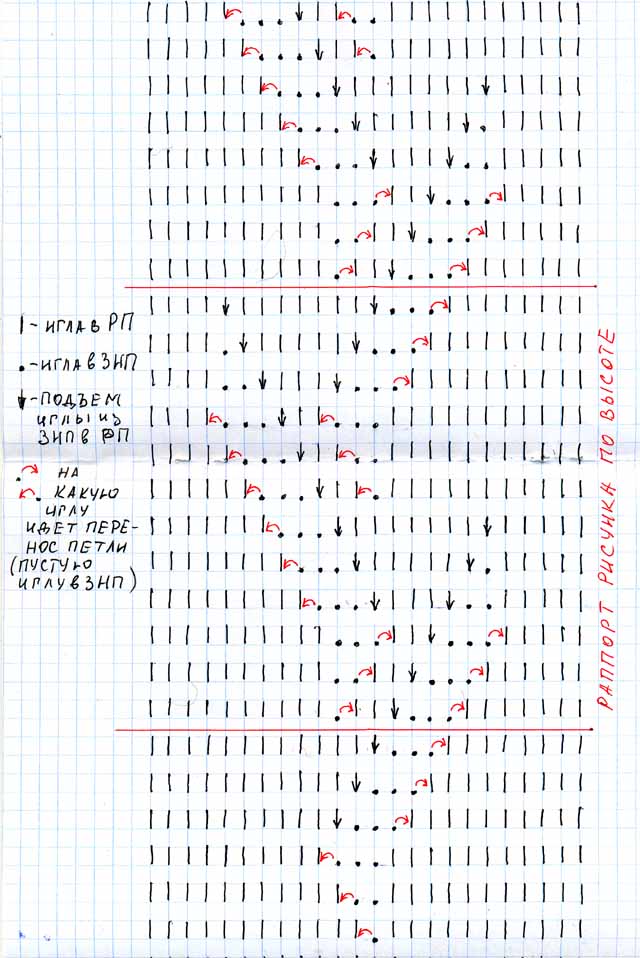 - ИГЛА В РП
- ИГЛА В ЗНП
- ПОДЪЕМ
ИГЛЫ ИЗ
ЗНП В РП
НА
КАКУЮ
ИГЛУ
ИДЕТ ПЕРЕ-
НОС ПЕТЛИ
(ПУСТУЮ
ИГЛУ В ЗНП)
РАППОРТ РИСУНКА ПО ВЫСОТЕ